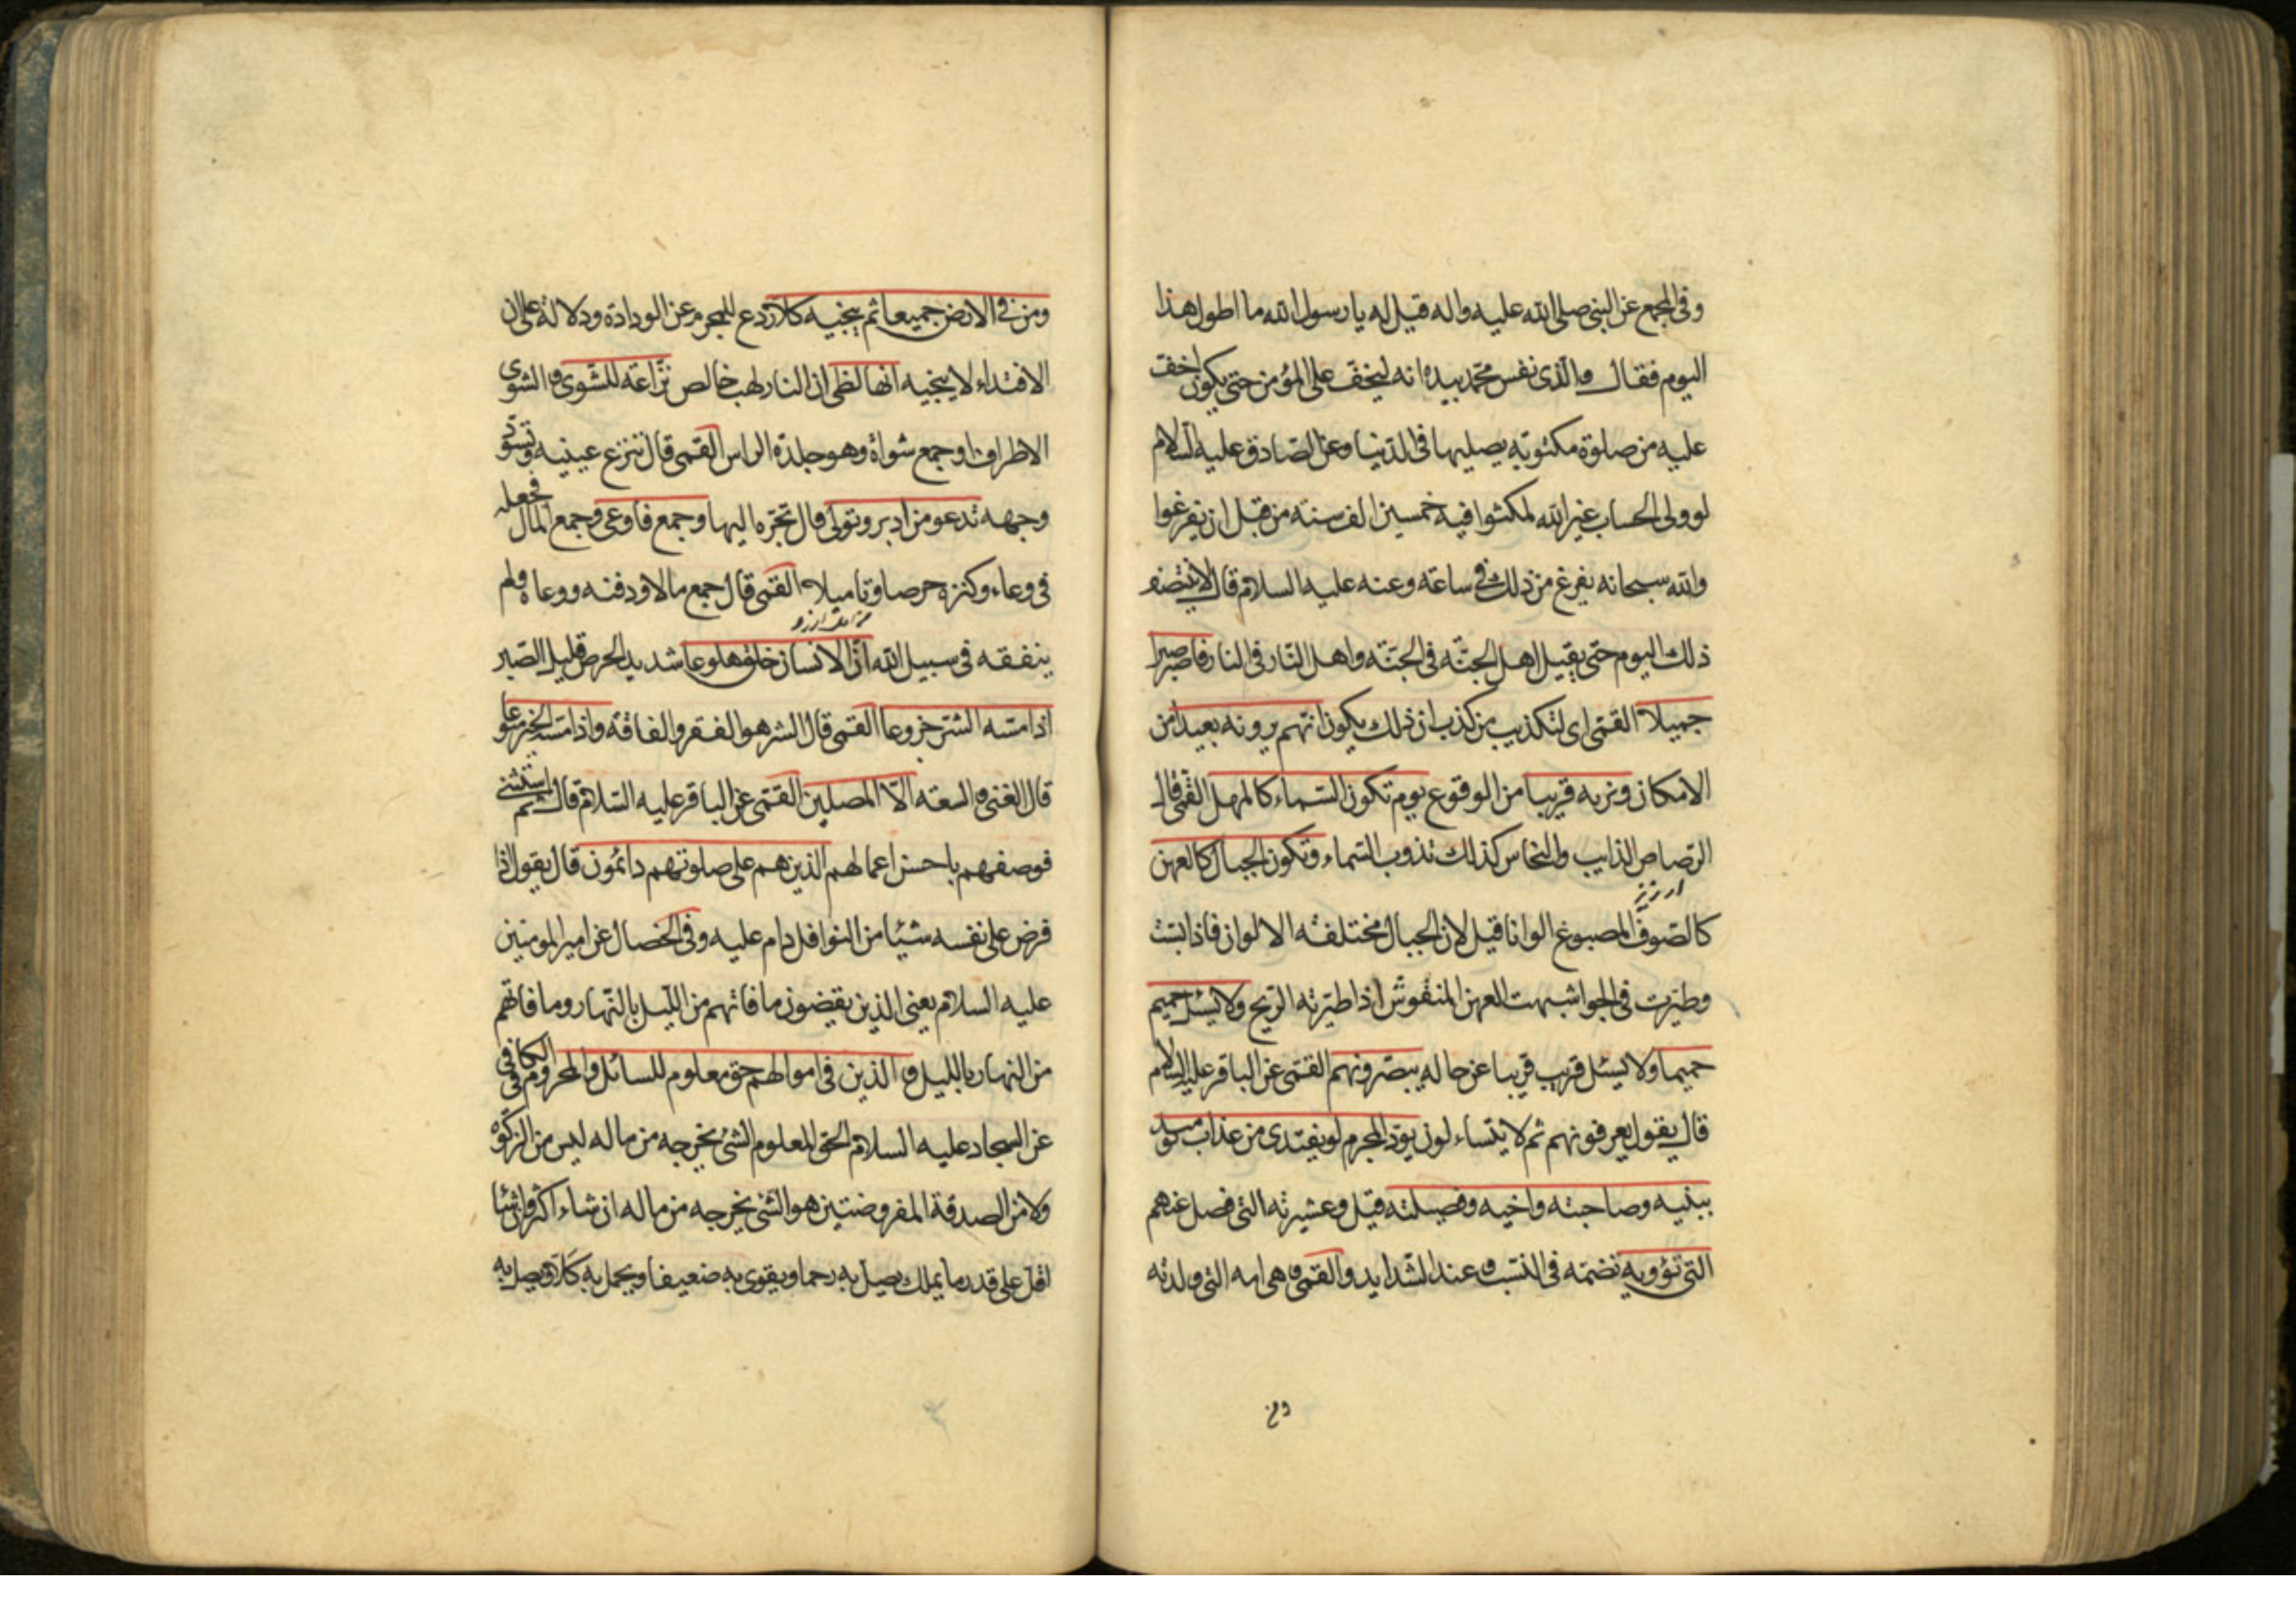 وفى المجمع عن النبى صلى الله عليه واله قيل له يا رسول الله ما اطول هذا
اليوم فقال والذى نفس محمد بيده انه ليخفف على المؤمن حتى يكون اخف
عليه من صلوة مكتوبة يصليها فى الدنيا وعن الصادق عليه السلام
لو ولى الحساب غير الله لمكثوا فيه خمسين الف سنة من قبل ان يفرغوا
والله سبحانه يفرغ من ذلك فى ساعة وعنه عليه السلام قال لا ينتصف
ذلك اليوم حتى يقيل اهل الجنة فى الجنة واهل النار فى النار فاصبر صبرا
جميلا القمى اى لتكذيب من كذب ان ذلك يكون انهم يرونه بعيدا من
الامكان ونريه قريبا من الوقوع يوم تكون السماء كالمهل القمى قال
الرصاص الذايب والنحاس كذلك تذوب السماء وتكون الجبال كالعهن
ارزيز
كالصوف المصبوغ الوانا قيل لان الجبال مختلفة الالوان فاذا بست
وطيرت فى الجو اشبهت العهن المنفوش اذا طيرته الريح ولا يسئل حميم
حميما ولا يسئل قريب قريبا عن حاله يبصرونهم القمى عن الباقر عليه السلام
قال يقول يعرفونهم ثم لا يتساءلون يود المجرم لو يفتدى من عذاب يومئذ
ببنيه وصاحبته واخيه وفصيلته قيل وعشيرته التى فصل عنهم
التى تؤويه تضمه فى النسب وعند الشدايد والقمى وهى امه التى ولدته
ومن
ومن فى الارض جميعا ثم ينجيه كلا ردع للمجرم عن الودادة ودلالة على ان
الافتداء لا ينجيه انها لظى ان النار لهب خالص نزاعة للشوى والشوى
الاطراف او جمع شواة وهو جلدة الراس القمى قال تنزع عينيه وتسود
وجهه تدعو من ادبر وتولى قال تجره اليها وجمع فاوعى وجمع المال فجعله
فى وعاء وكنزه حرصا وتاميلا القمى قال جمع مالا ودفنه ووعاه ولم
ينفقه فى سبيل الله ان الانسان خلق هلوعا شديد الحرص قليل الصبر
اذا مسه الشر جزوعا القمى قال الشر هو الفقر والفاقة واذا مسه الخير منوعا
قال الغنى والسعة الا المصلين القمى عن الباقر عليه السلام قال ثم استثنى
فوصفهم باحسن اعمالهم الذين هم على صلوتهم دائمون قال يقول اذا
فرض على نفسه شيئا من النوافل دام عليه وفى الخصال عن امير المومنين
عليه السلام يعنى الذين يقضون ما فاتهم من الليل بالنهار وما فاتهم
من النهار بالليل والذين فى اموالهم حق معلوم للسائل والمحروم فى الكافى
عن السجاد عليه السلام الحق المعلوم الشئ يخرجه من ماله ليس من الزكوة
ولا من الصدقة المفروضتين هو الشئ يخرجه من ماله ان شاء اكثر وان شاء
اقل على قدر ما يملك يصل به رحما ويقوى به ضعيفا ويحمل به كلا ويصل به